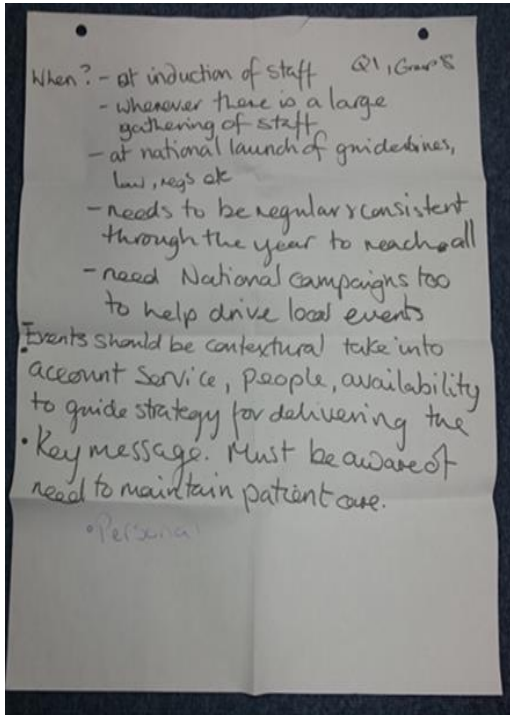 Q1, Group 8
When? - at induction of staff
- whenever there is a large
gathering of staff
- at national launch of guidelines,
law, regs etc
- needs to be regular & consistent
through the year to reach all
- need National campaigns too
to help drive local events
Events should be contextural take into
account Service, people, availability
to guide strategy for delivering the
• Key message. Must be aware of
need to maintain patient care.
• Personal